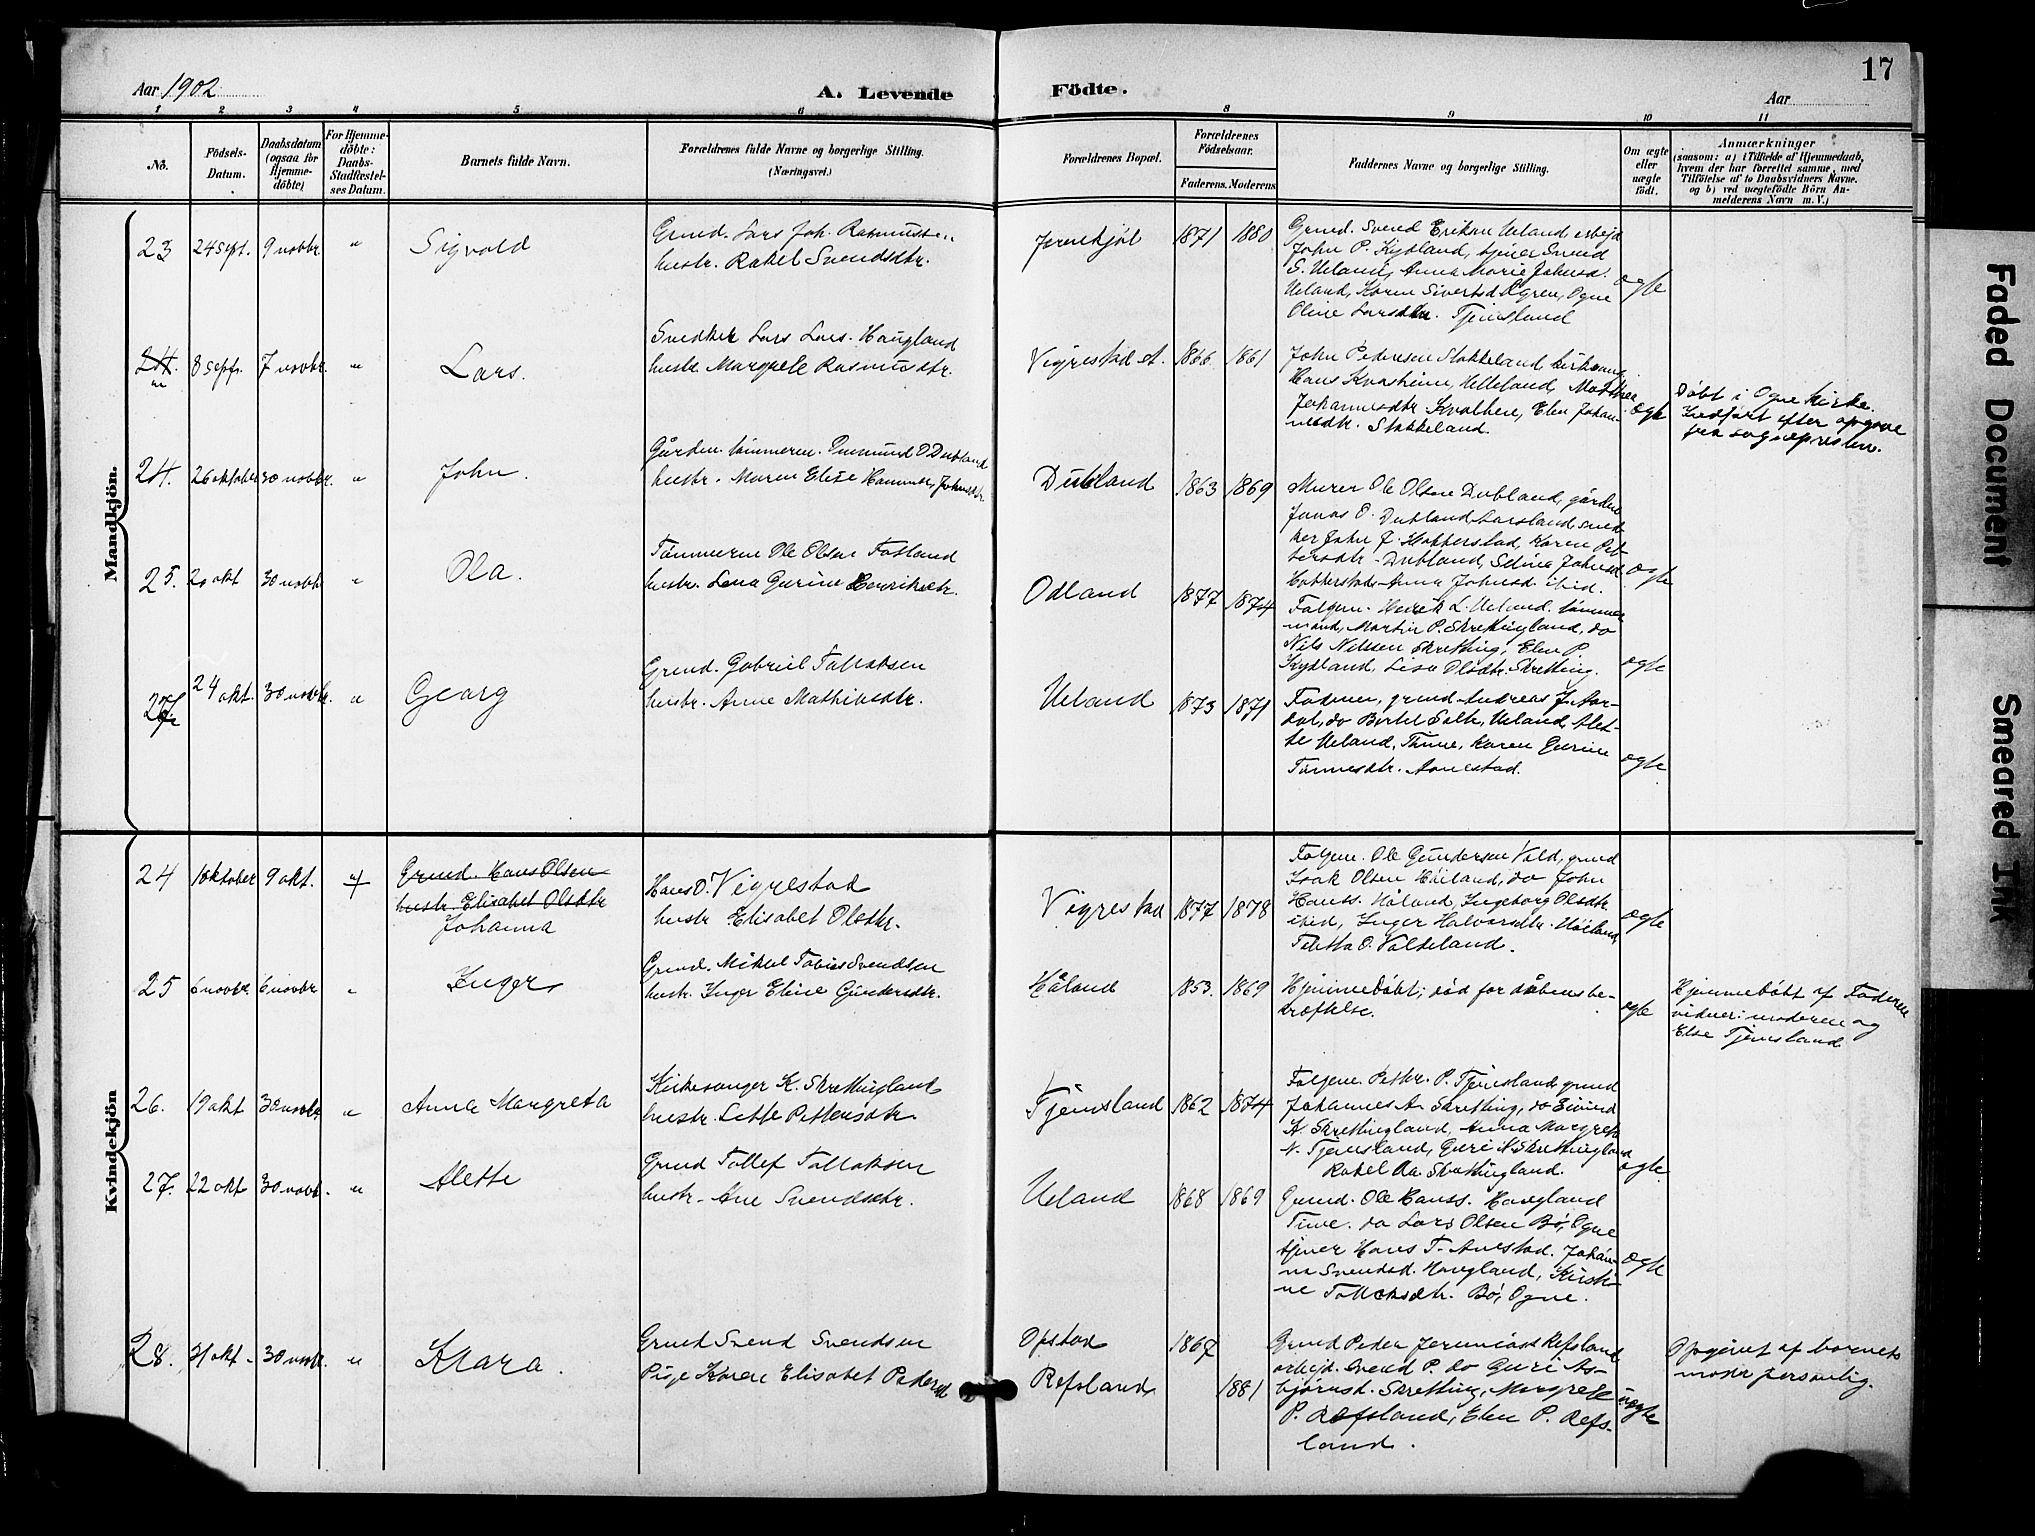 17
Aar 1902
A. Levende
Födte.
Aar
1 2 3 4 5 6 8 9 10 11
No.
Födsels-Datum.
Daabsdatum (ogsaa for Hjemmedöbte)
For Hjemmedöbte: Daabs-Stadfæstelses Datum.
Barnets fulde Navn.
Forældrenes fulde Navne og borgerlige Stilling.
(Næringsvei.)
Forældrenes Bopæl.
Forældrenes Födselsaar.
Faderens. Moderens
Faddernes Navne og borgerlige Stilling.
Om ægte eller uægte födt.
Anmærkninger
(saasom: a) i Tilfælde af Hjemmedaab, hvem der har forrettet samme, med Tilföielse af to Daabsvidners Navne. og b) ved uægtefödte Börn Anmelderens Navn m. V.)
Mandkjön.
23 24 sept. 9 novbr. " Sigvald
Grmd. Lars Joh. Rasmussen
hustr. Rakel Svendsdtr.
1871 1880
Grmd. Svend Eriksen Ueland arbejd
John P. Kydland, tjener Svend
S. Ueland, Anna Marie Johnsd.
Ueland, Karen Sivertsd Ogren, Ogne
Oline Larsdtr. Tjemsland
ægte
24. 8 sept. 7 novbr. " Lars.
Snedker Lars Lars. Haugland
hustr. Margrete Rasmusdtr.
Vigrestad st. 1866 1861
John Pedersen Stokkeland,
Hans Kvasheim, Helleland,
Johannesdtr Kvalbein, Elen Johan-
nesdtr. Stokkeland.
ægte
Døbt i Ogne kirke.
Indført efter opgave
fra sognepresten.
24. 26 oktober 30 novbr. " John.
hustr. Maren Elise Johnsdtr
Dubland 1863 1869
Murer Ole Olsen Dubland,
Jonas O. Dubland
ker John J. Hobberstad, Karen Pet-
tersdtr. Dubland, Selina Johnsd
Hobberstad Anna Johnsd. ibid.
ægte
25. 20 okt 30 novbr " Ola.
Tømmerm Ole Olsen Fotland
hustr. Lena Gurine Henriksdtr.
Odland 1877 1874
Følgem. Henrik L. Ueland. tømmer
mand, Martin P. Skrettingland, do
Nils Nilssen Skretting, Elen P.
Kydland, Lisa Olsdtr. Skretting.
ægte
24 okt. 30 novbr. " Georg
Grmd. Gabriel Tollaksen
hustr. Anne Mathiasdtr.
Ueland 1873 1871
Faderen, grmd Andreas J. Aar-
dal, do Bertel Salte, Ueland, Alet-
te Ueland, Thime, Karen Gurine
Tønnesdtr. Aanestad.
ægte
Kvindekjön
24 1 oktober 9 okt. "
Grmd. Hans Olsen
hustr. Elisabet Olsdtr
Johanna
Hans O. Vigrestad
hustr Elisabet Olsdtr.
Vigrestad 1877 1878
Følgem. Ole Gundersen Vold, grmd
Isak Olsen Høiland, do John
Hanss. Høland, Ingeborg Olsdtr
ibid, Inger Halvorsdtr. Høiland,
ægte
25 6 novbr. 6 novbr " Inger
Grmd. Mikkel Tobias Svendsen
hustr. Inger Eline Gundersdtr.
Håland 1853. 1869
Hjemmedøbt; død før dåbens be-
kræftelse.
ægte
Hjemmedøbt af Faderen
vidner: moderen og
Else Tjemsland
26. 19 okt 30 novbr " Anna Margreta
Kirkesanger K. Skrettingland
hustr. Lette Pettersdtr
Tjemsland 1862 1874
Følgem. Petter P. Tjemsland, grmd
Johannes A. Skretting, do Eivind
K. Skrettingland, Anna Margrete
N. Tjemsland, Guri K Skrettingland
Rakel Aa. Skrettingland.
ægte.
27. 22 okt 30 novbr. " Alette
Grmd Tollef Tollaksen
hustr. Ane Svendsdtr.
Ueland 1868 1869
Grmd. Ole Hanss. Haugland
Time. do Lars Olsen Bø, Ogne
tjener Hans T. Anestad. Johan-
na Svendsd. Haugland, Kirsti-
ne Tollaksdtr. Bø, Ogne.
ægte
28. 21 okt. 30 novbr. " Klara.
Grmd Svend Svendsen
Pige Karen Elisabet Pedersd
Opstad 1867
Refsland 1881
Grmd Peder Jeremiass Refsland
arbejd. Svend P. do Guri As-
bjørnsd. Skretting, Margrete
P. Refsland, Elen P. Refs-
land.
uægte
Opgivet af barnets
moder personlig.
Faded Document
Smeared Ink